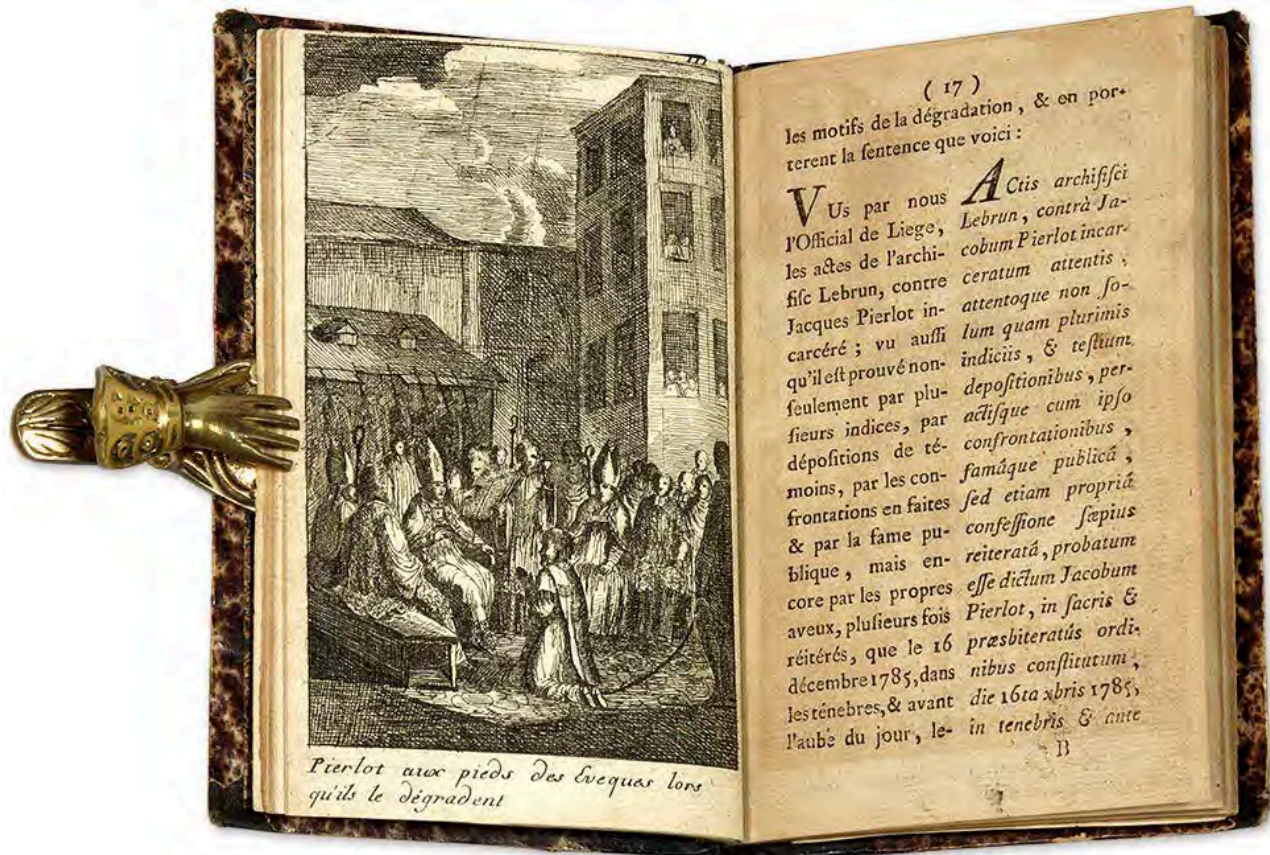 Pierlot aux pieds des Eveques lors
qu'ils le dégradent
( 17 )
les motifs de la dégradation, & en por-
terent la ſentence que voici :
VUs par nous
l'Official de Liege,
les actes de l'archi-
fiſc Lebrun, contre
Jacques Pierlot in-
carcéré ; vu auſſi
qu'il eſt prouvé non-
ſeulement par plu-
ſieurs indices, par
dépoſitions de té-
moins, par les con-
frontations en faites
& par la fame pu-
blique, mais en-
core par les propres
aveux, pluſieurs fois
réitérés, que le 16
décembre 1785, dans
les ténebres, & avant
l'aube du jour, le-
ACtis archifiſci
Lebrun, contrà Ja-
cobum Pierlot incar-
ceratum attentis,
attentoque non ſo-
lum quam plurimis
indiciis, & teſtium
depoſitionibus, per-
actiſque cum ipſo
confrontationibus,
famáque publicâ,
ſed etiam propriâ
confeſſione ſæpius
reiteratâ, probatum
eſſe dictum Jacobum
Pierlot, in ſacris &
præsbiteratûs ordi-
nibus conſtitutum,
die 16ta xbris 1785,
in tenebris & ante
B